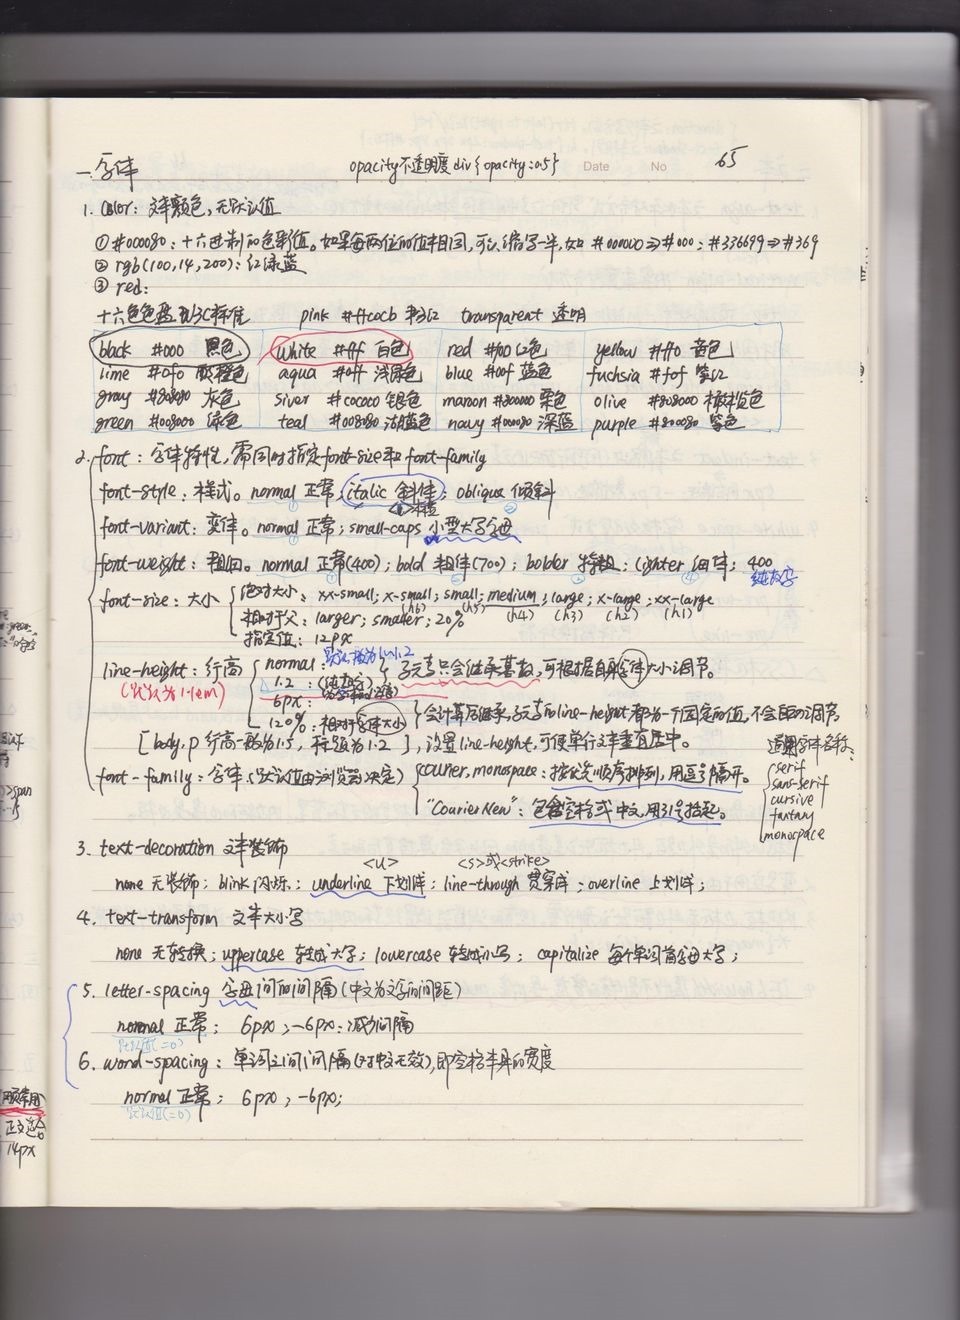 一.字体
opacity不透明度 div{opacity:0.5} Date No 65
1. color: 文本颜色,无默认值
①#000080:十六进制的色彩值。如果每两位的值相同,可以缩写一半,如 #000000⇒#000; #336699⇒#369
② rgb(100,14,200): 红绿蓝
③ red:
十六色色盘 W3C标准 pink #ffcocb 粉红 transparent 透明
black #000 黑色 white #fff 白色 red #f00 红色 yellow #ff0 黄色
lime #0f0 酸橙色 aqua #0ff 浅绿色 blue #00f 蓝色 fuchsia #f0f 紫红
gray #808080 灰色 siver #cococo 银色 maroon #800000 栗色 olive #808000 橄榄色
green #008000 绿色 teal #008080 湖蓝色 navy #000080 深蓝 purple #800080 紫色
2. font: 字体特性,需同时指定font-size和font-family
font-style: 样式。normal 正常; italic 斜体; oblique 倾斜
<i>标签
font-variant: 变体。normal 正常; small-caps 小型大写字母
font-weight: 粗细。normal 正常(400); bold 粗体(700); bolder 特粗; lighter 细体; 400
纯数字
font-size: 大小 绝对大小: xx-small; x-small; small; medium; large; x-large; xx-large
(h6) (h5) (h4) (h3) (h2) (h1)
相对于父: larger; smaller; 20%
指定值: 12px
line-height: 行高 normal: 默认 1.2
(默认为1.1em)
1.2: (纯数字) 子元素只会继承基数,可根据自身字体大小调节。
6px:
120%: 相对于字体大小 会计算后继承,子元素的line-height都为一个固定的值,不会自动调节。
[body, p 行高一般为1.5, 标题为1.2], 设置line-height,可使单行文本垂直居中。
font-family: 字体(默认值由浏览器决定) courier, monospace: 按优先顺序排列,用逗号隔开。
"Courier New": 包含空格或中文,用引号括起。
通用字体名称:
serif
sans-serif
cursive
fantasy
monospace
3. text-decoration 文本装饰
<u> <s>或<strike>
none 无装饰; blink 闪烁; underline 下划线; line-through 贯穿线; overline 上划线;
4. text-transform 文本大小写
none 无转换; uppercase 转成大写; lowercase 转成小写; capitalize 每个单词首字母大写;
5. letter-spacing 字母间的间隔(中文为文字的间距)
normal 正常; 6px; -6px: 减少间隔
默认值(=0)
6. word-spacing: 单词之间间隔(对中文无效),即空格本身的宽度
normal 正常; 6px; -6px;
默认值(=0)
14px